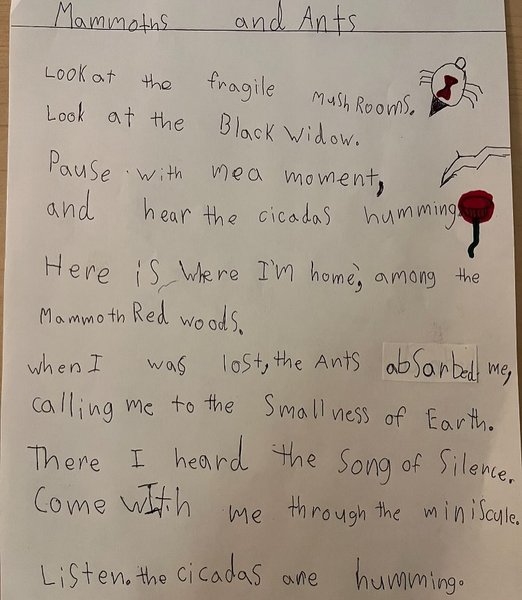 Mammoths and Ants
Look at the fragile mushRooms.
Look at the Black Widow.
Pause with me a moment,
and hear the cicadas humming.
Here is where I'm home, among the
Mammoth Red woods.
when I was lost, the Ants absarbed me,
calling me to the Smallness of Earth.
There I heard the Song of Silence.
Come with me through the miniscule.
Listen. the cicadas are humming.